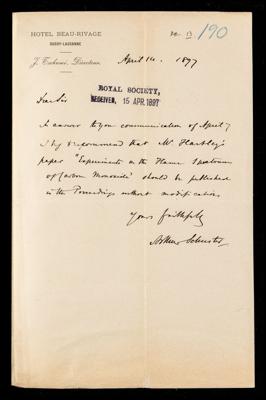 HOTEL BEAU-RIVAGE
OUCHY-LAUSANNE
J. Tschumi, Directeur.
190
April 14. 1897
ROYAL SOCIETY,
RECEIVED, 15 APR.1897
Dear Sir
In answer to your communication of April 7
I beg to recommend that Mr. Hartley's
paper "Experiments on the Flame Spectrum
of Carbon Monoxide" should be published
in the Proceedings without modification
Yours faithfully
Arthur Schuster